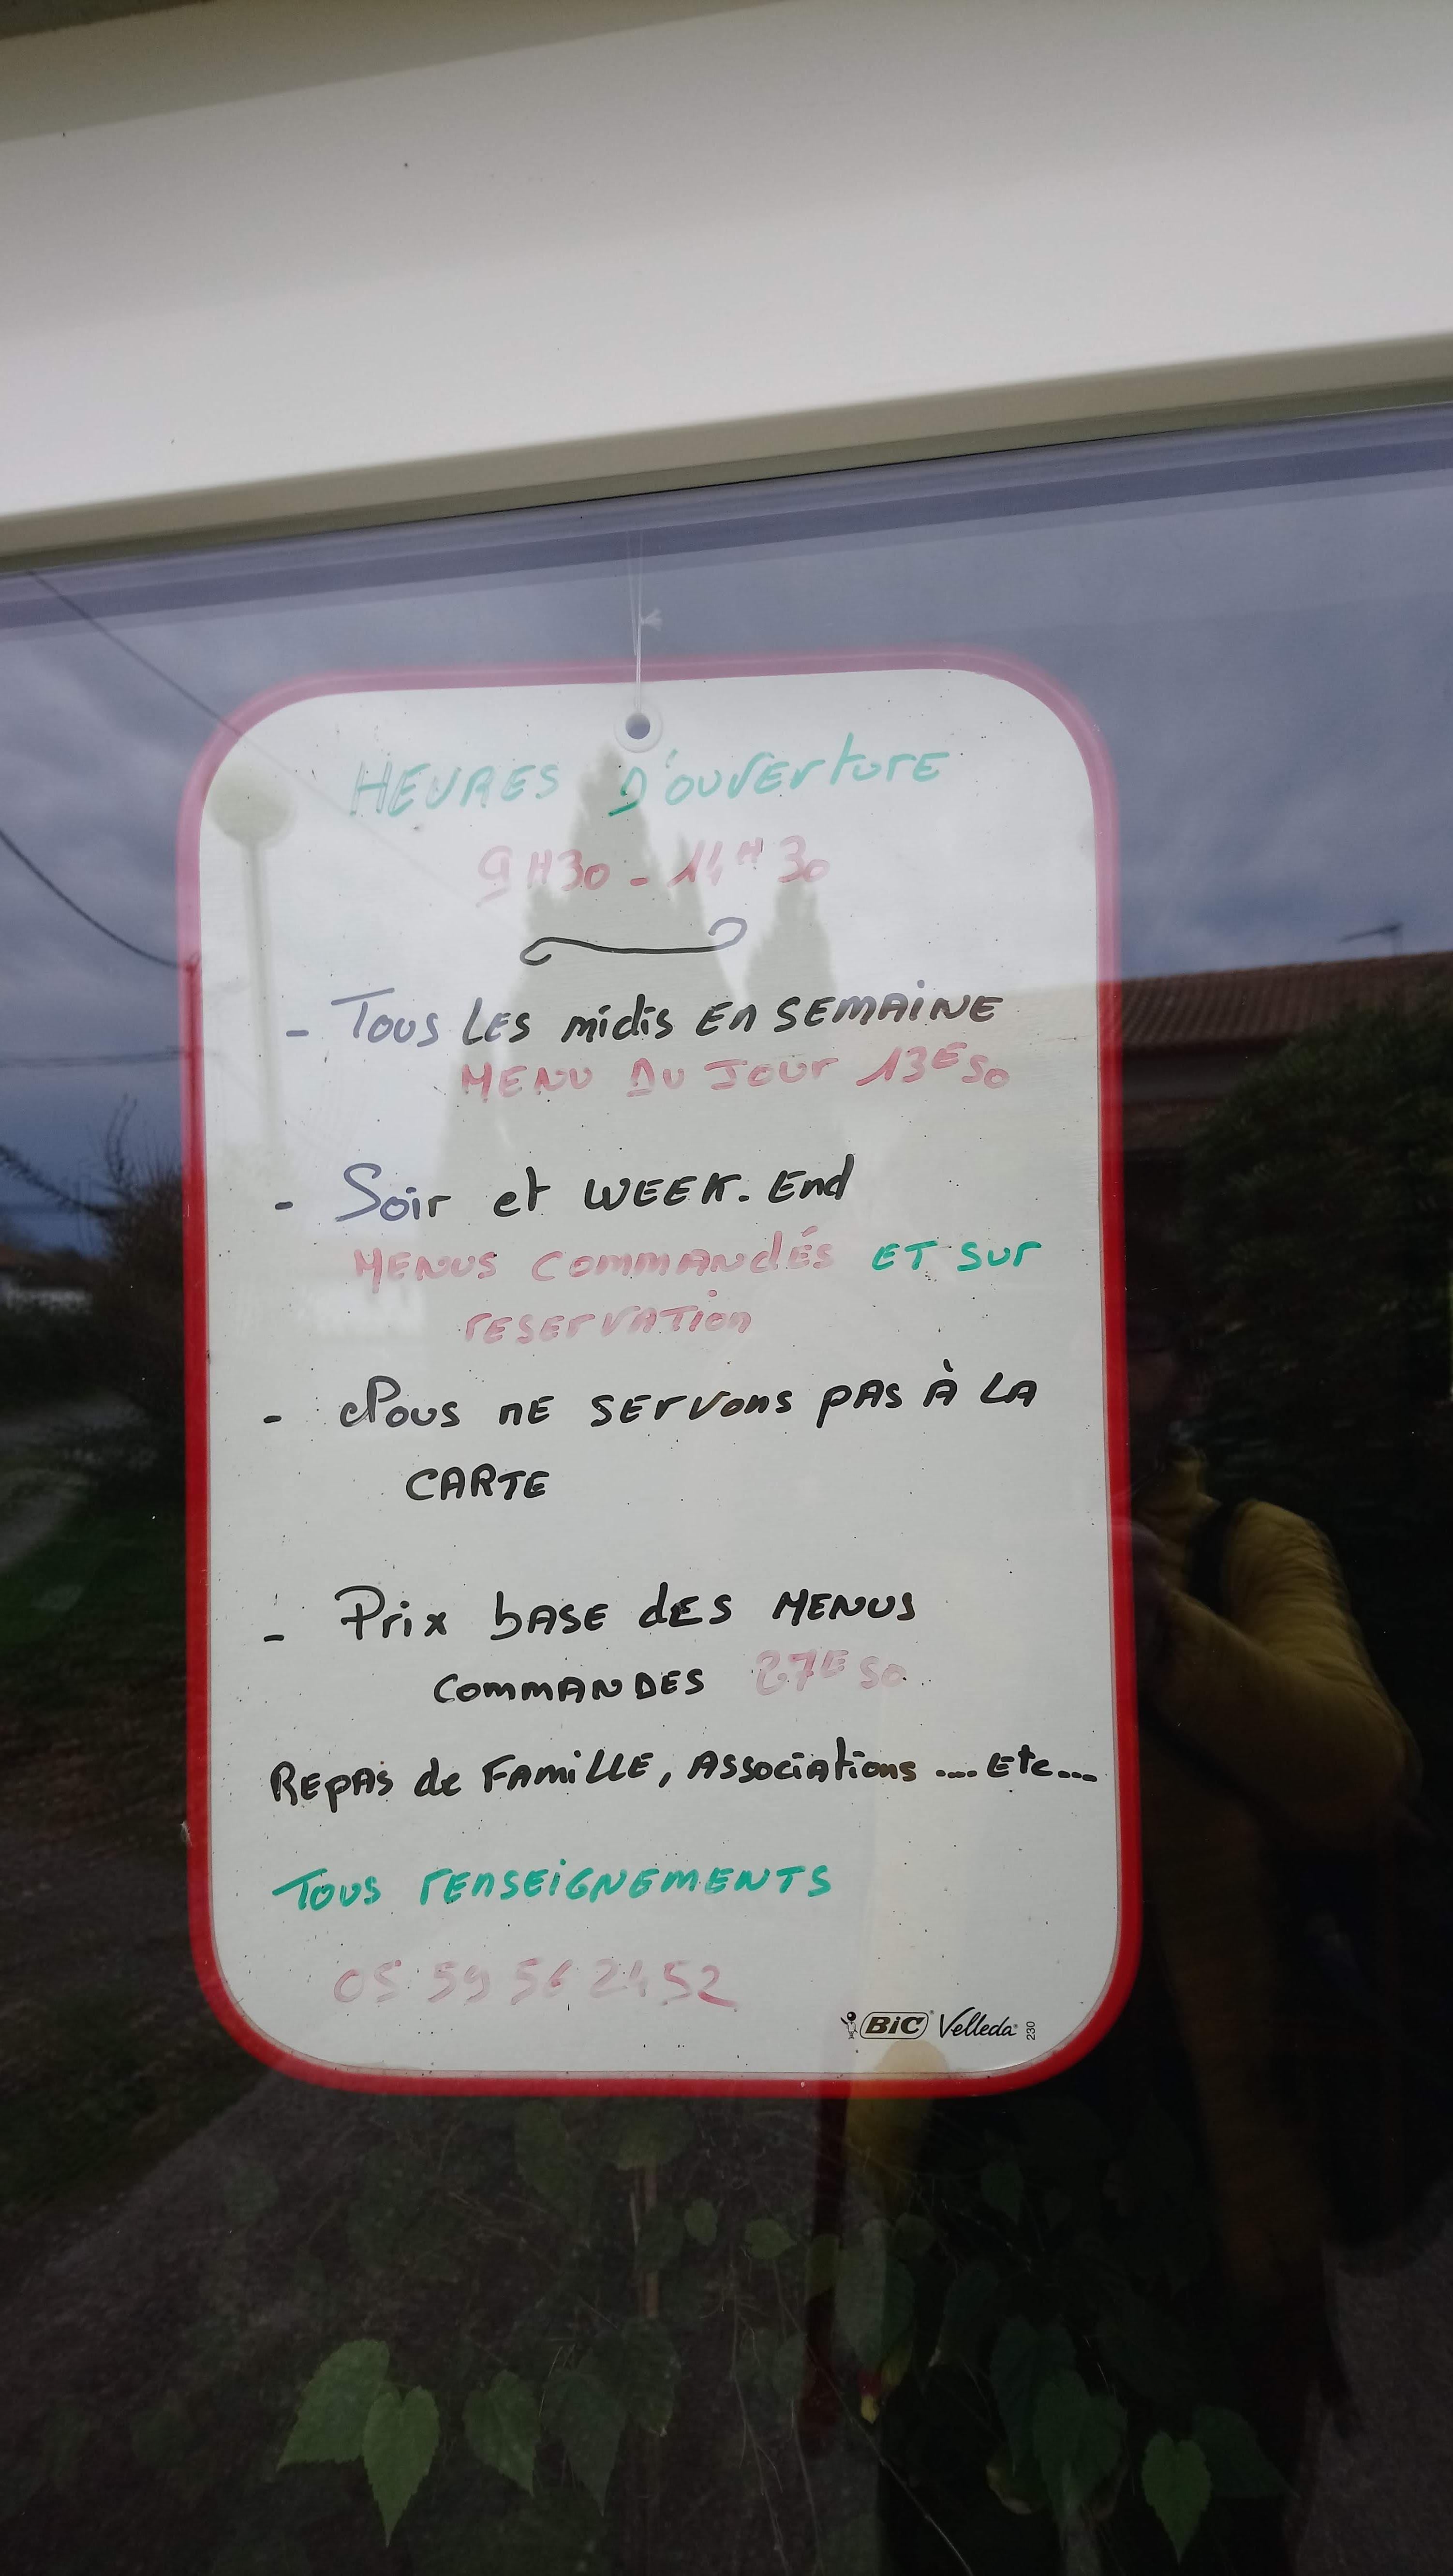 HEURES D'OUVERTURE
9H30 - 14H30
- TOUS LES midis En SEMAINE
MENU DU JOUR 13E50
- Soir et WEEK. End
MENUS COMMANdÉS ET SUr
rESErVATion
- Nous nE SErVons PAS À LA
CARTE
- Prix bASE dES MENUS
COMMANDES 27E50
REPAS de FAMiLLE, ASSociAtions .... Etc...
TOUS rEnSEiGNEMENTS
05 59 56 24 52
BIC Velleda 230